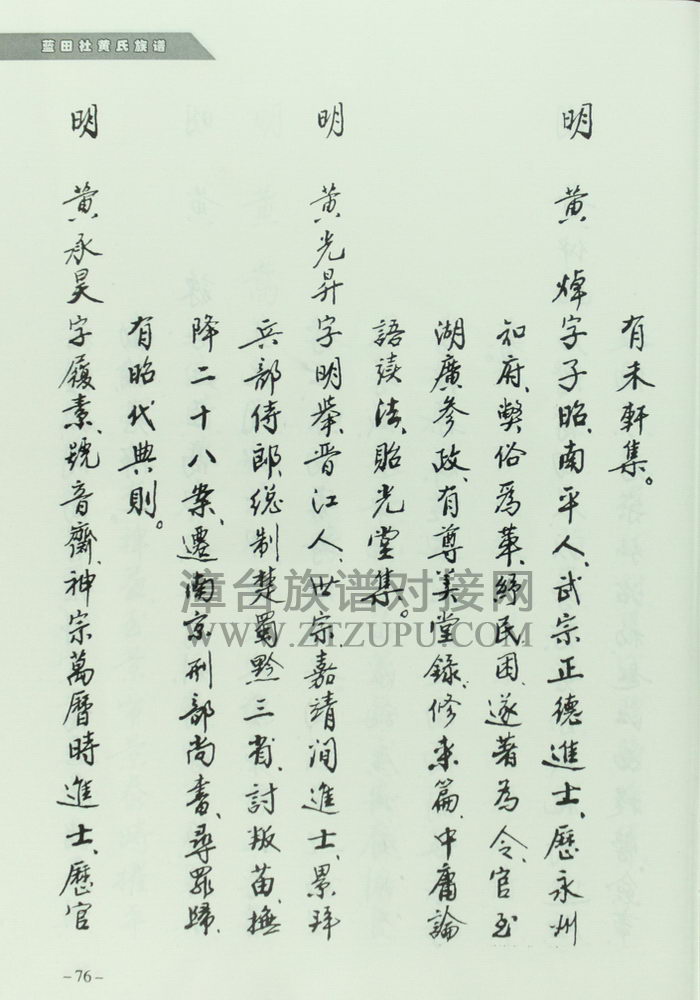 蓝田社黄氏族谱
有未軒集。
明 黄焯字子昭、南平人、武宗正德進士、歷永州
知府、弊俗為革、紓民困、遂著為令、官至
湖廣參政、有尊美堂錄、修来篇、中庸論
語读法、貽光堂集。
明 黄光昇字明举、晋江人、世宗嘉靖间進士、累拜
兵部侍郎、總制楚蜀黔三省、討叛苗、撫
降二十八案、遷南京刑部尚書、尋罢歸、
有昭代典則。
明 黄承昊字履素、號音齋、神宗萬曆時進士、歷官
漳台族谱对接网
WWW.ZTZUPU.COM
-76-